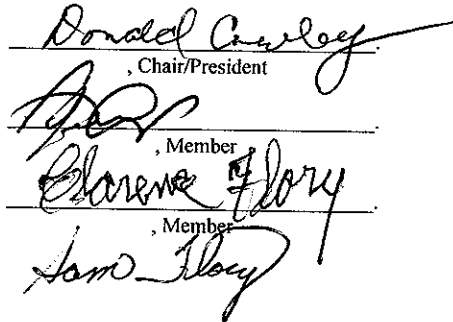 Donald Cowley
, Chair/President
, Member
Clarence Flory
, Member
Sam Flory